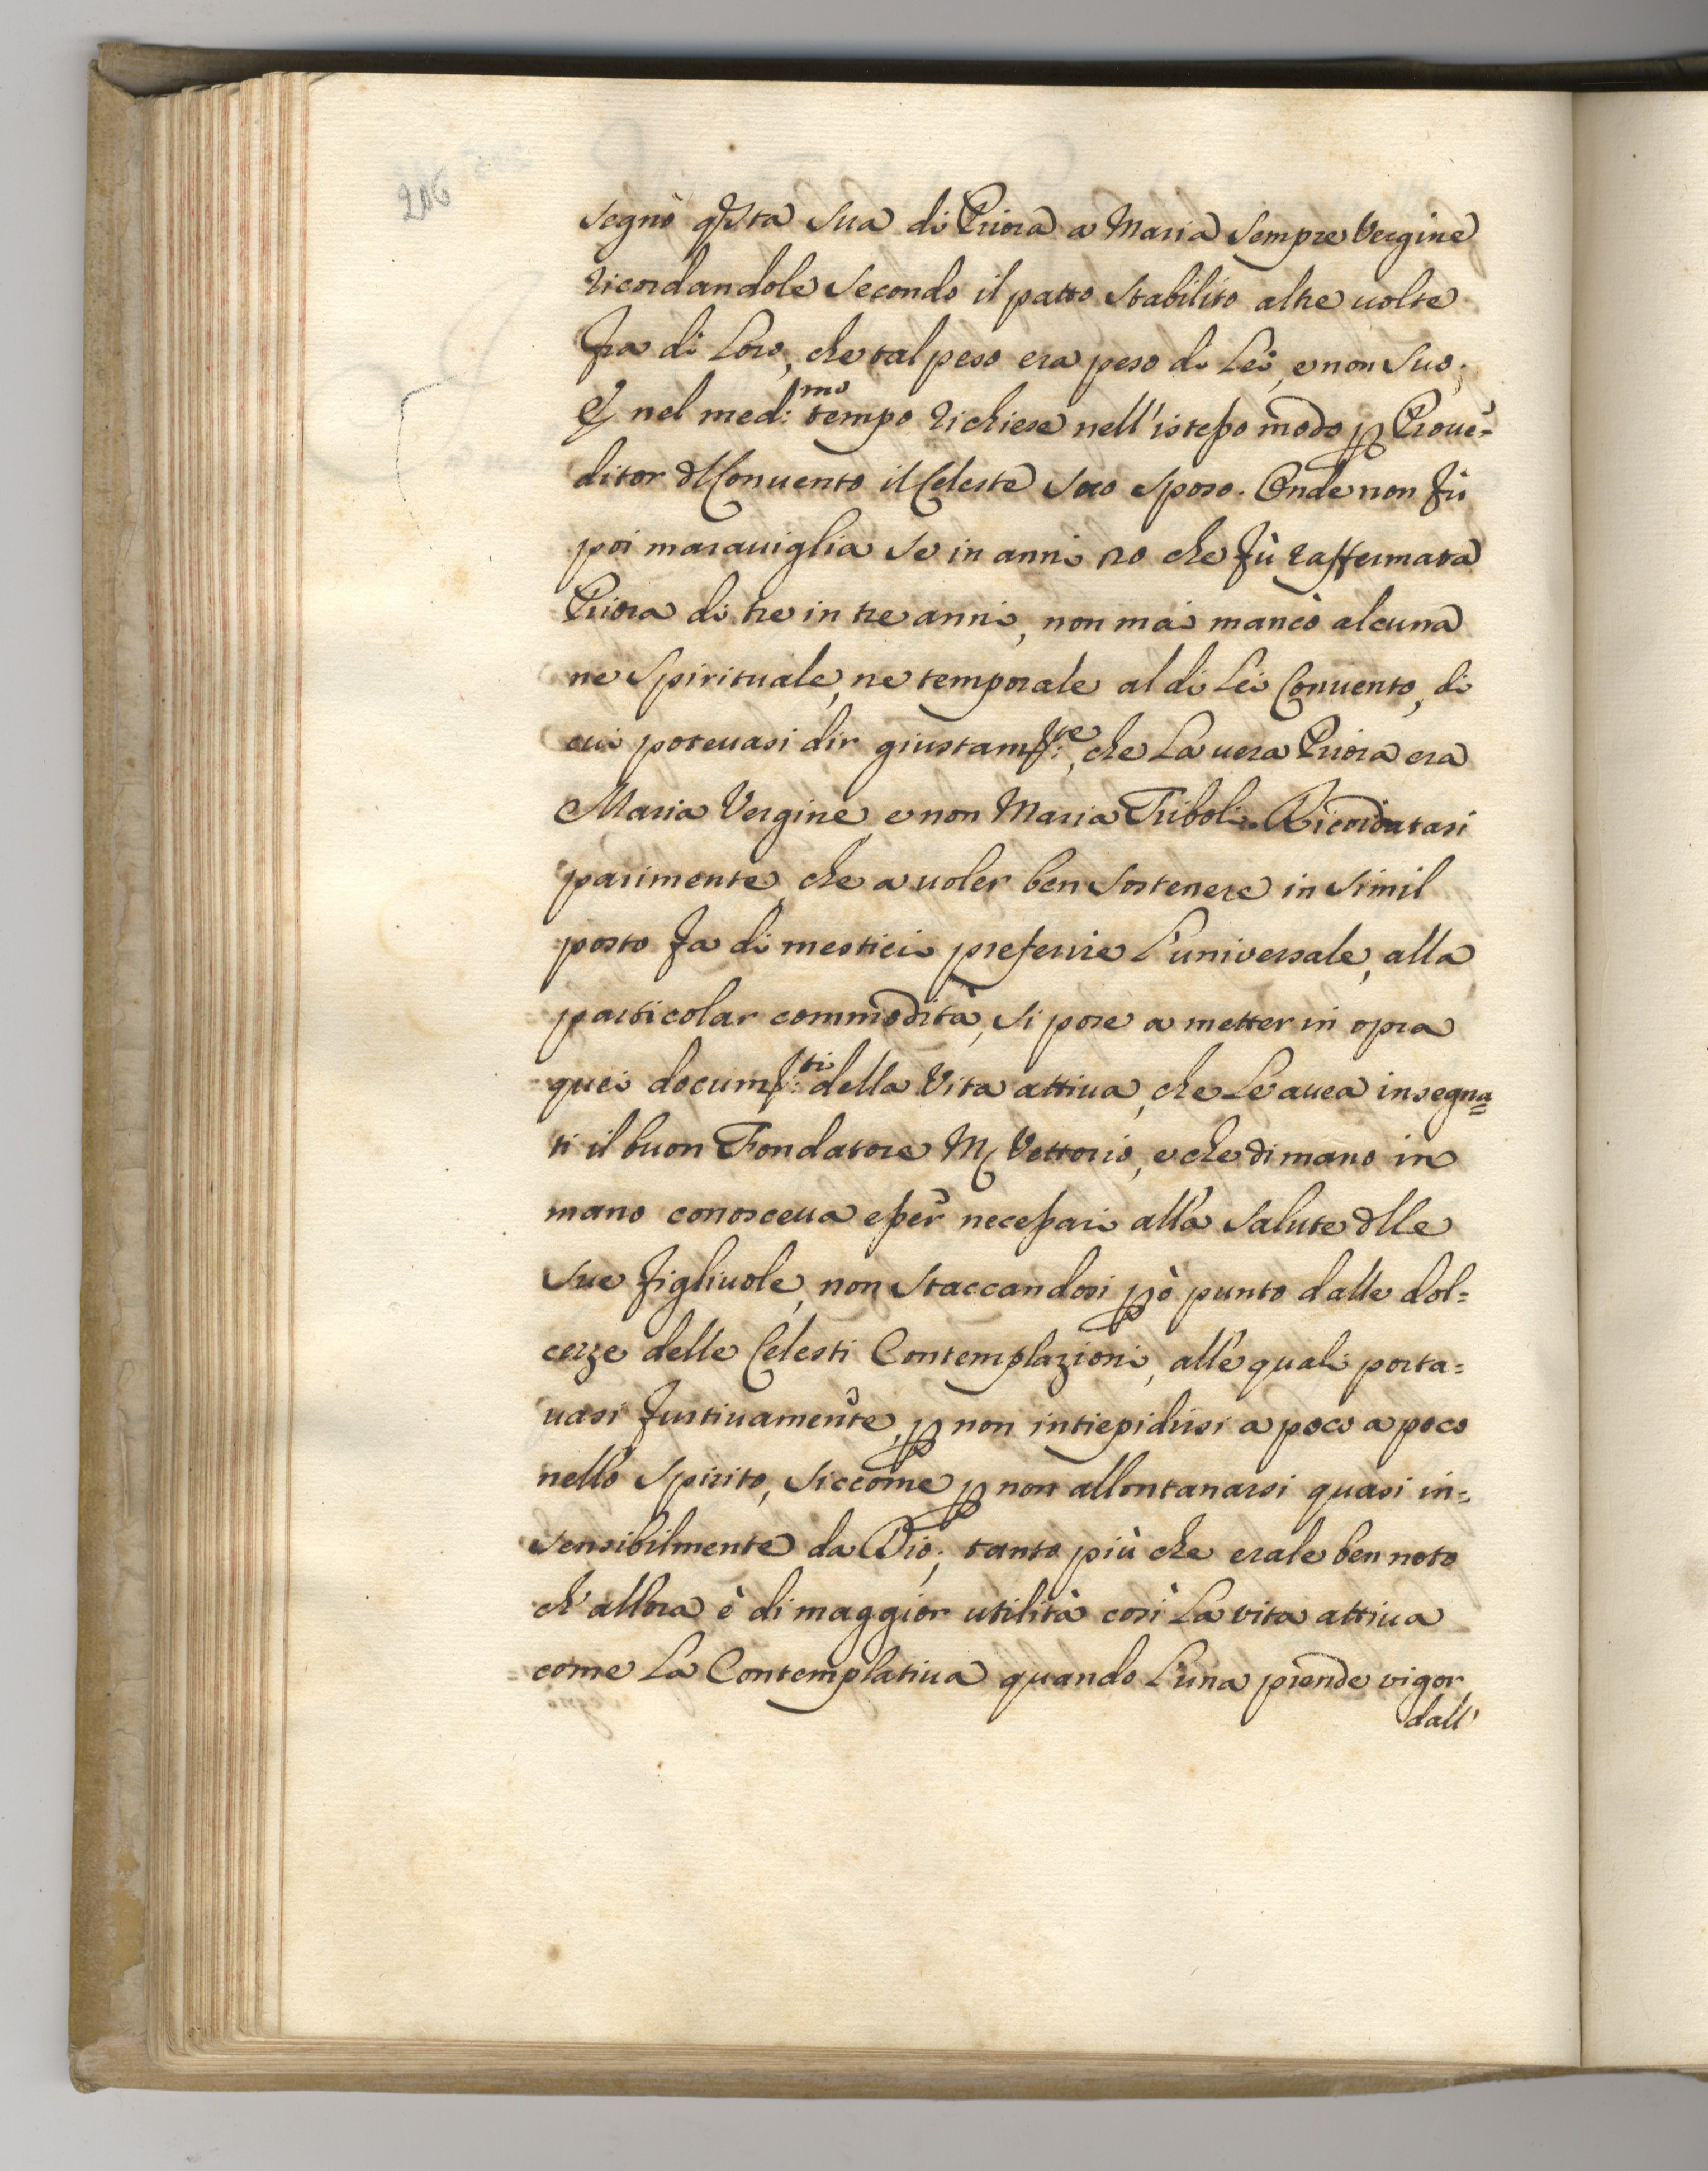 206
segnò qsta sua di Priora a Maria sempre Vergine
ricordandole secondo il patto stabilito altre uolte
fra di Loro, che tal peso era peso di Lei, e non suo;
E nel med:mo tempo richiese nell'istesso modo p Proue=
ditor dl Conuento il Celeste suo sposo. Onde non fù
poi marauiglia se in anni 20 che fù raffermata
Priora di tre in tre anni, non mai mancò alcuna
ne spirituale, ne temporale al di Lei Conuento, di
cui poteuasi dir giustam:te, che La uera Priora era
Maria Vergine, e non Maria Triboli. Ricordatasi
parimente, che a uoler ben sostenere in simil
posto fa di mestieri preferire L'universale, alla
particolar commodità, si pose a metter in opra
quei docum:ti della Vita attiua, che Le auea insegna=
ti il buon Fondatore M Vettorio, e che di mano in
mano conosceua esser necessari alla salute dlle
sue figliuole, non staccandosi pò punto dalle dol=
cezze delle Celesti Contemplazioni, alle quali porta=
uasi furtiuamente, p non intiepidirsi a poco a poco
nello spirito, siccome p non allontanarsi quasi in=
sensibilmente da Dio; tanto più che erale ben noto
ch'allora è di maggior utilità così La vita attiua
come La Contemplatiua quando L'una prende vigor
dall'